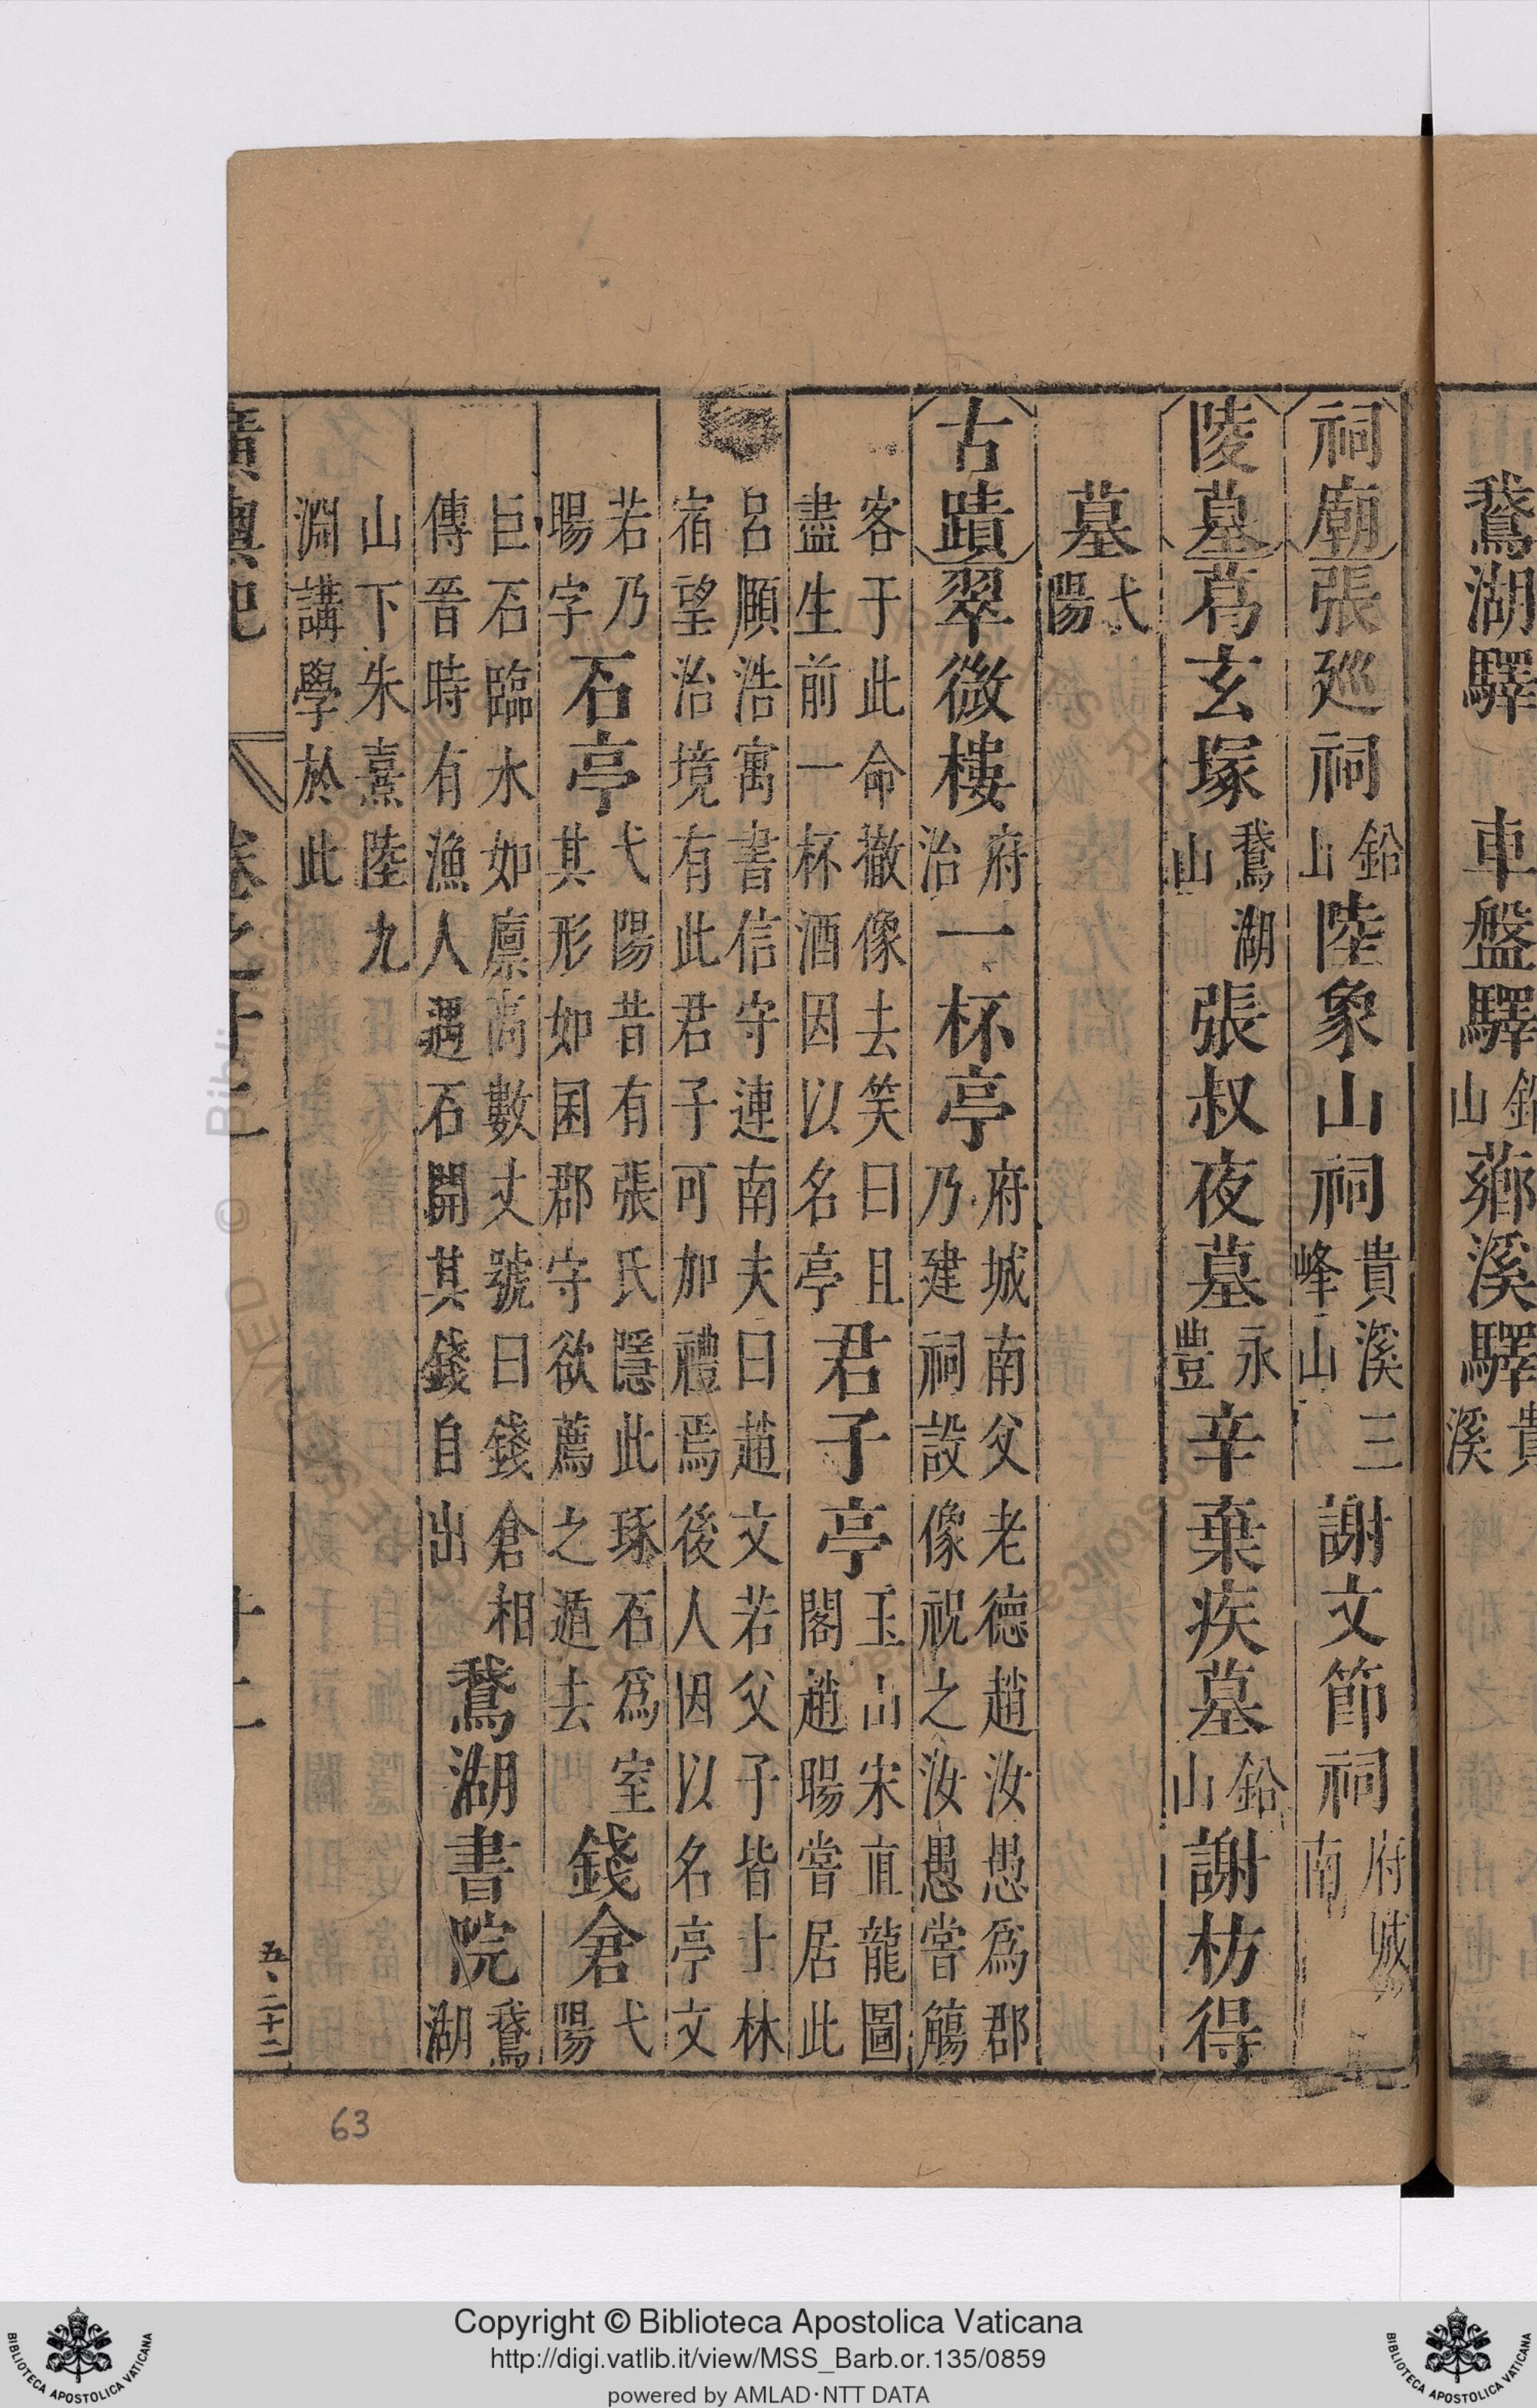 鵞湖驛 車盤驛鉛山薌溪驛貴溪
祠廟張廵祠鉛山陸象山祠貴溪三峰山謝文節祠府城南
陵墓葛玄塚鵞湖山張叔夜墓永豐辛棄疾墓鉛山謝枋得
墓弋陽
古蹟翠微樓府治一杯亭府城南父老德趙汝愚爲郡乃建祠設像祝之汝愚嘗觴
客于此命徹像去笑曰且盡生前一杯酒因以名亭君子亭玉山宋直龍圖閣趙暘嘗居此
呂頤浩寓書信守連南夫曰趙文若父子皆上林宿望治境有此君子可加禮焉後人因以名亭文
若乃暘字石亭弋陽昔有張氏隱此琢石爲室其形如囷郡守欲薦之遁去錢倉弋陽
巨石臨水如廪高數丈號曰錢倉相傳晉時有漁人遇石開其錢自出鵞湖書院鵞湖
山下朱熹陸九淵講學於此
廣輿記 卷之十二 十二
五、二十二
63
Copyright © Biblioteca Apostolica Vaticana
http://digi.vatlib.it/view/MSS_Barb.or.135/0859
powered by AMLAD·NTT DATA
BIBLIOTECA APOSTOLICA VATICANA
BIBLIOTECA APOSTOLICA VATICANA